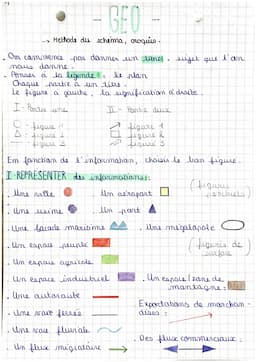 - GEO -
→ Méthode du schéma, croquis.
. On commence par donner un titre, sujet que l'on nous donne.
. Penser à la légende : le plan
Chaque partie à un titre.
Le figure à gauche, la signification à droite.
I - Partie une II - Partie deux
- figuré 1 figuré 1
- figuré 2 figuré 2
- figuré 3 figuré 3
En fonction de l'information, choisir le bon figuré.
I REPRÉSENTER des informations:
. Une ville . Un aéroport (figurés ponctuels)
. Une usine . Un port
. Une façade maritime . Une mégalopole
. Un espace peuplé (figurés de surface)
. Un espace agricole
. Un espace industriel . Un espace/zone de montagne:
. Une autoroute . Exportations de marchandises :
. Une voie ferrée
. Une voie fluviale . Des flux commerciaux :
. Un flux migratoire